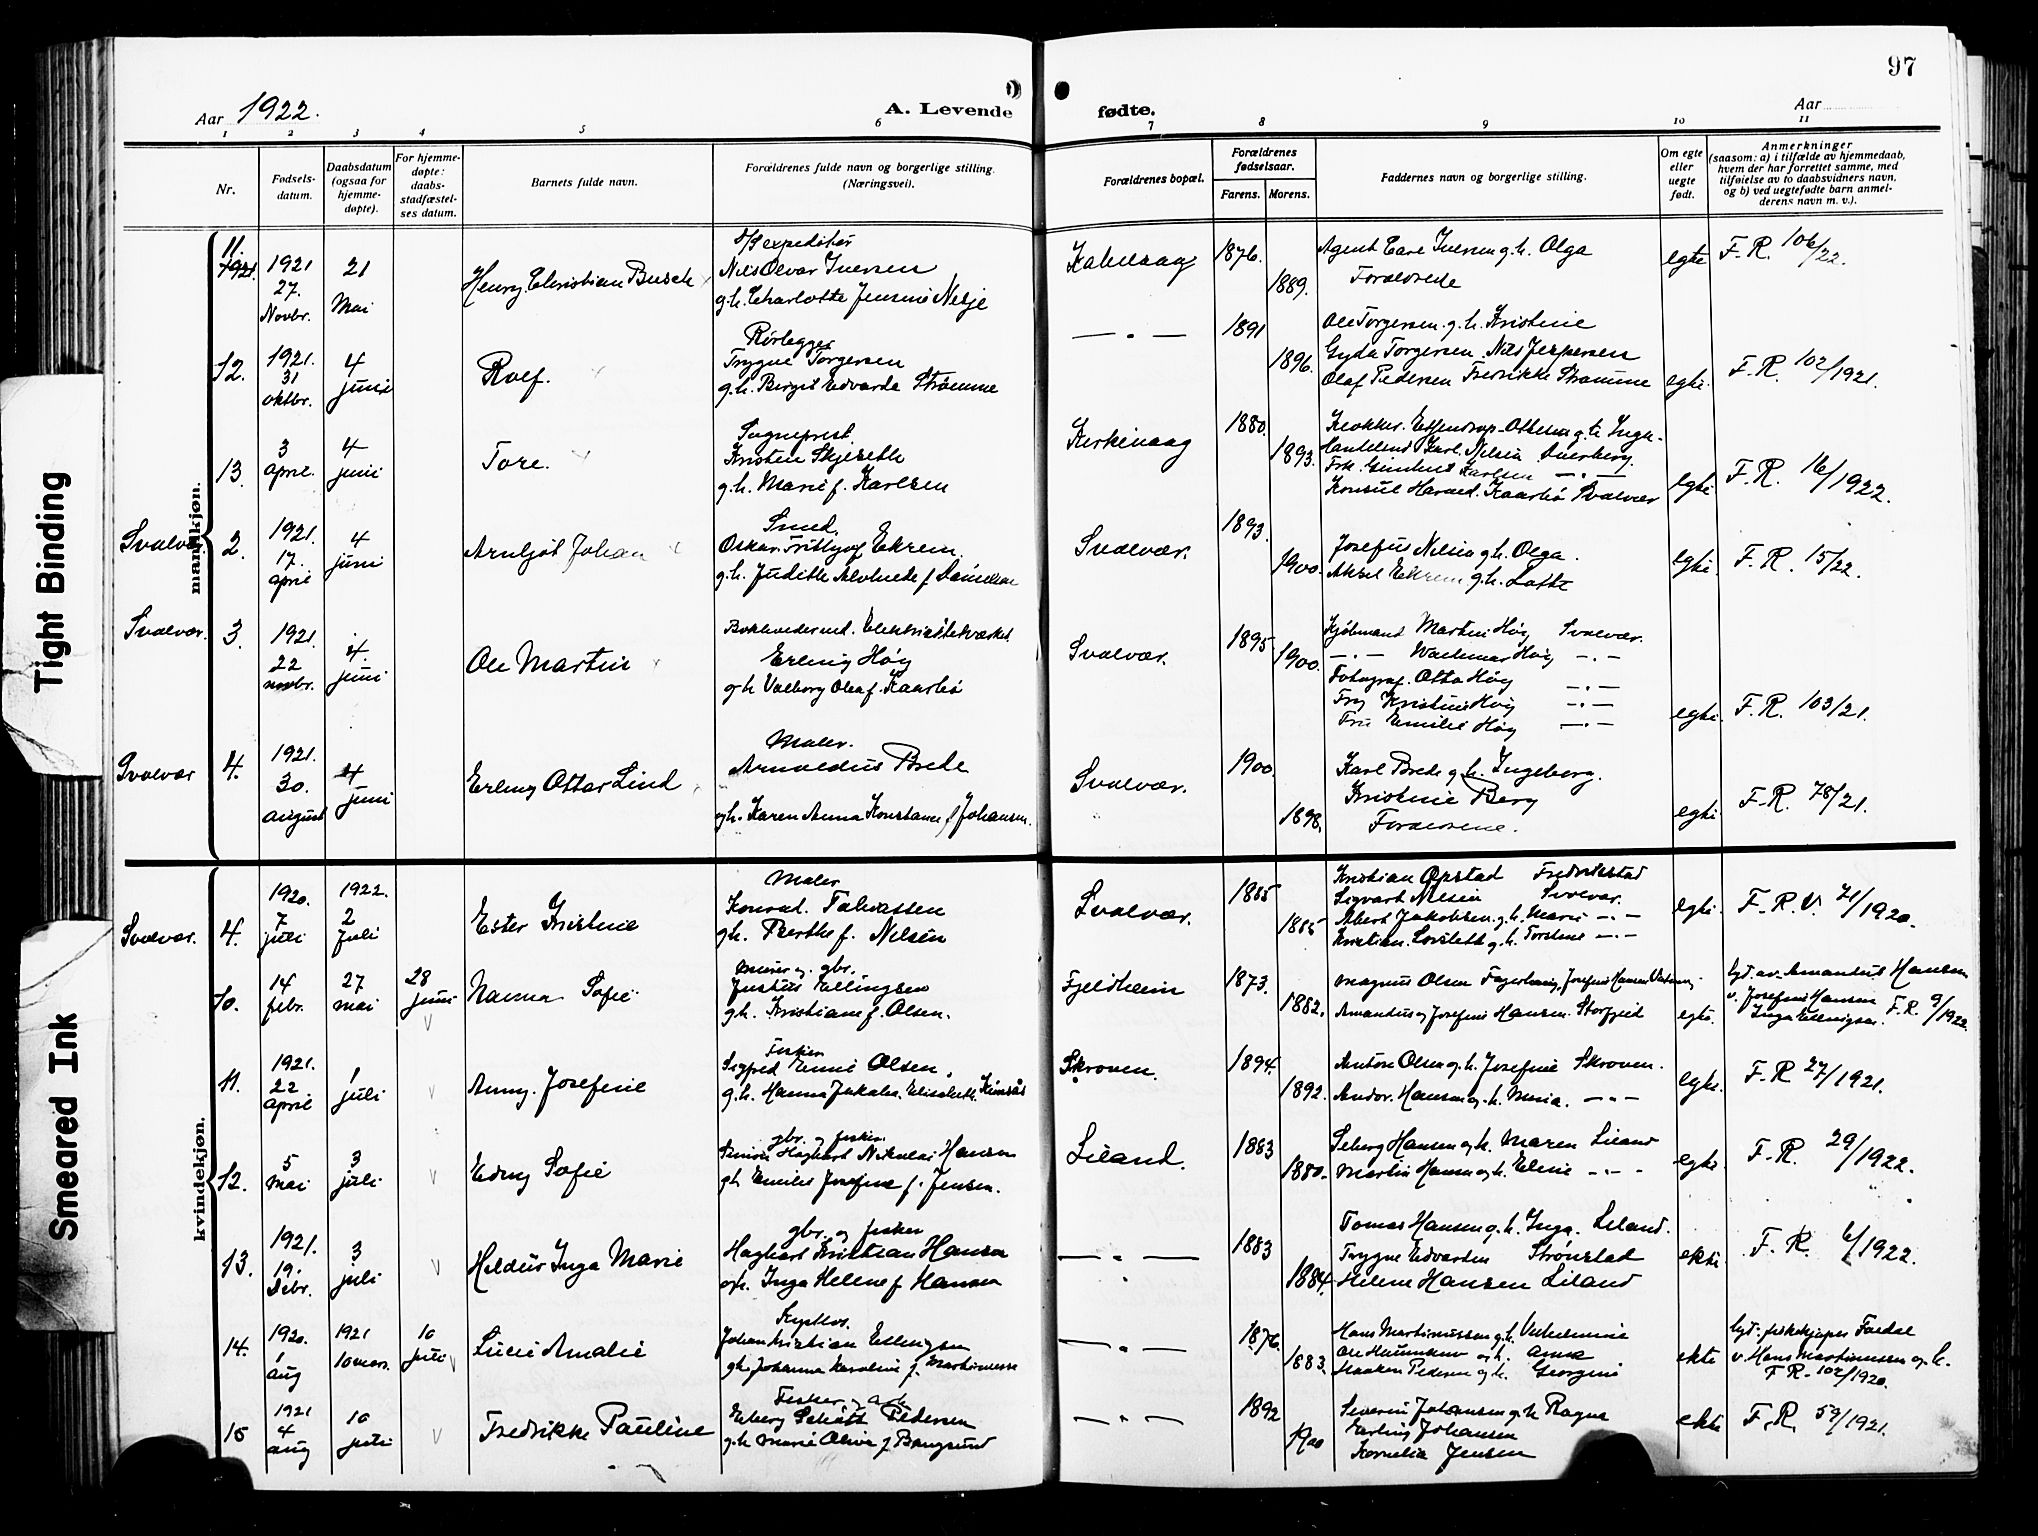 97
Aar 1922.
A. Levende fødte.
Aar
1 2 3 4 5 6 7 8 9 10 11
Nr.
Fødsels-
datum.
Daabsdatum
(ogsaa for
hjemme-
døpte).
For hjemme-
døpte:
daabs-
stadfæstel-
ses datum.
Barnets fulde navn.
Forældrenes fulde navn og borgerlige stilling.
(Næringsvei).
Forældrenes bopæl.
Forældrenes
fødselsaar.
Farens. Morens.
Faddernes navn og borgerlige stilling.
Om egte
eller
uegte
født.
Anmerkninger
(saasom: a) i tilfælde av hjemmedaab,
hvem der har forrettet samme, med
tilføielse av to daabsvidners navn,
og b) ved uegtefødte barn anmel-
derens navn m. v.).
mandkjøn.
11. 1921. 27. Novbr. 21 Mai
Henry Christian Busch
expeditør
Nils Olvar Iversen
g.h. Charlotte Jensine Nesje
Kabelvaag 1876. 1889.
Agent Carl Iversen g.h. Olga
Forældrene
egte F.R. 106/22.
12. 1921. 31 oktbr. 4 juni
Rolf.
Rørlegger
Trygve Torgersen
g.h. Birgit Edvarda Strømme
— " — 1891 1896.
Ole Torgersen g.h. Kristine
Gyda Torgersen. Nils Jespersen
Olaf Pedersen Fredrikke Strømme
egte. F.R. 102/1921.
13. 3 april. 4 juni
Tore.
Sogneprest.
Kristen Skjeseth
g.h. Marie f. Karlsen
Kirkevaag 1880. 1893.
Klokker. Ottesen g.h. Inga
Karl Nilsen
Frk. Karlsen — " —
Konsul Harald Kaarbø Svolvær
egte. F.R. 16/1922.
Svolvær 2. 1921. 17. april 4 juni
Arnljot Johan
Smed.
Oskar Fritjof Ekrem.
g.h. Judith Alvhilde f. Danielsen
Svolvær. 1893. 1900.
Josefus Nilsen g.h. Olga.
Aksel Ekrem g.h. Lotte
egte. F.R. 15/22.
Svolvær. 3. 1921. 22 novbr. 4 juni
Ole Martin
Bokholder ved. Elektricitetsverket
Erling Høy
g.h. Valborg Olea f. Kaarbø
Svolvær. 1895 1900.
Kjøbmand Martin Høy Svolvær.
— " — Waldemar Høy — " —
Fotograf. Otto Høy — " —
Frøy Kristine Høy — " —
Fru Emilie Høy — " —
egte. F.R. 103/21.
Svolvær 4. 1921. 30. august 4 juni
Erling Ottar Lind
Maler.
Arnoldus Brede
g.h. Karen Anna Konstance f. Johansen.
Svolvær. 1900. 1898.
Karl Brede g.h. Ingeborg.
Kristine Berg
Forældrene.
egte. F.R. 78/21.
kvindekjøn.
Svolvær. 4. 1920. 7 juli 1922. 2 juli
Ester Kristine
Maler
Konrad. Tobiassen
g.h. Berthe f. Nilsen
Svolvær. 1885 1885
Kristian Opstad Fredrikstad
Sigvart Nilsen Svolvær.
Albert Jakobsen g.h. Marie — " —
Kristian g.h. Torstine — " —
egte. F.R.V. 71/1920.
10. 14 febr. 27 mai 28 juni
Nanna Sofie
Murer og gbr.
Justus Ellingsen
g.h. Kristiane f. Olsen.
Fjeldheim 1873. 1882.
Magnus Olsen
Amandus og Josefine Hansen. Storfjeld
egte. hjd. av. Amandus Hansen
v. Josefine Hansen
Inga Ellingsen. F.R. 9/1922.
11. 1921. 22 april 1 juli
Anny. Josefine
Fisker
Sigfred Emil Olsen,
g.h. Hanna Jakobe Elisabeth
Skroven. 1894. 1892.
Anton Olsen g.h. Josefine Skroven.
Andor. Hansen g.h. Maria. — " —
egte. F.R 27/1921.
12. 5 mai 3 juli
Edny Sofie
gbr. og fisker.
Simon Hagbart Nikolai Hansen
g.h. Emilie Josefine f. Jensen.
Liland. 1883 1880.
Seberg Hansen g.h. Maren Liland
Martin Hansen g.h. Eline — " —
egte. F.R. 29/1922.
13. 1921. 19. Debr. 3 juli
Heldur Inga Marie
gbr. og fisker
Hagbart Kristian Hansen
g.h. Inga Helene f. Hansen
— " — 1883 1884.
Tomas Hansen g.h. Inga. Liland.
Trygve Edvardsen Strønstad
Helene Hansen Liland
ekte. F.R. 6/1922.
14. 1920. 1 aug 1921 10 mars. 10 juli
Lucie Amalie
Johan Kristian Ellingsen
g.h. Johanna Karoline f. Martinussen
— " — 1876. 1883.
Hans Martinussen g.h. Vilhelmine
g.h. Anna
Haakon Pedersen g.h. Georgine
ekte hjd. fiskekjøper
v. Hans Martinussen g.h.
F.R. 102/1920.
15 1921 4 aug 10 juli
Fredrikke Pauline
Fisker og arb
Schøtt Pedersen
g.h. Marie Olive f. Bangsund
— " — 1892 1900
Severin Johansen g.h. Ragna
Johansen
Kornelia Jensen
ekte F.R. 59/1921.
Tight Binding
Smeared Ink